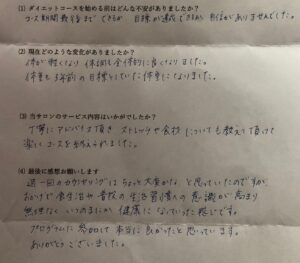 (1) ダイエットコースを始める前はどんな不安がありましたか？
コース期間最後までできるか、目標が達成できるか自信がありませんでした。
(2) 現在どのような変化がありましたか？
体が軽くなり体調も全体的に良くなりました。
体重も3年前の目標としていた体重になりました。
(3) 当サロンのサービス内容はいかがでしたか？
丁寧にアドバイス頂き ストレッチや食材についても教えて頂けて
楽しくコースを終えられました。
(4) 最後に感想お願いします
週一回のカウンセリングはちょっと大変かな と思っていたのですが、
おかげで食生活や普段の生活習慣への意識が高まり
無理なく いつのまにか健康になっていった感じです。
プログラムに参加して本当に良かったと思っています。
ありがとうございました。